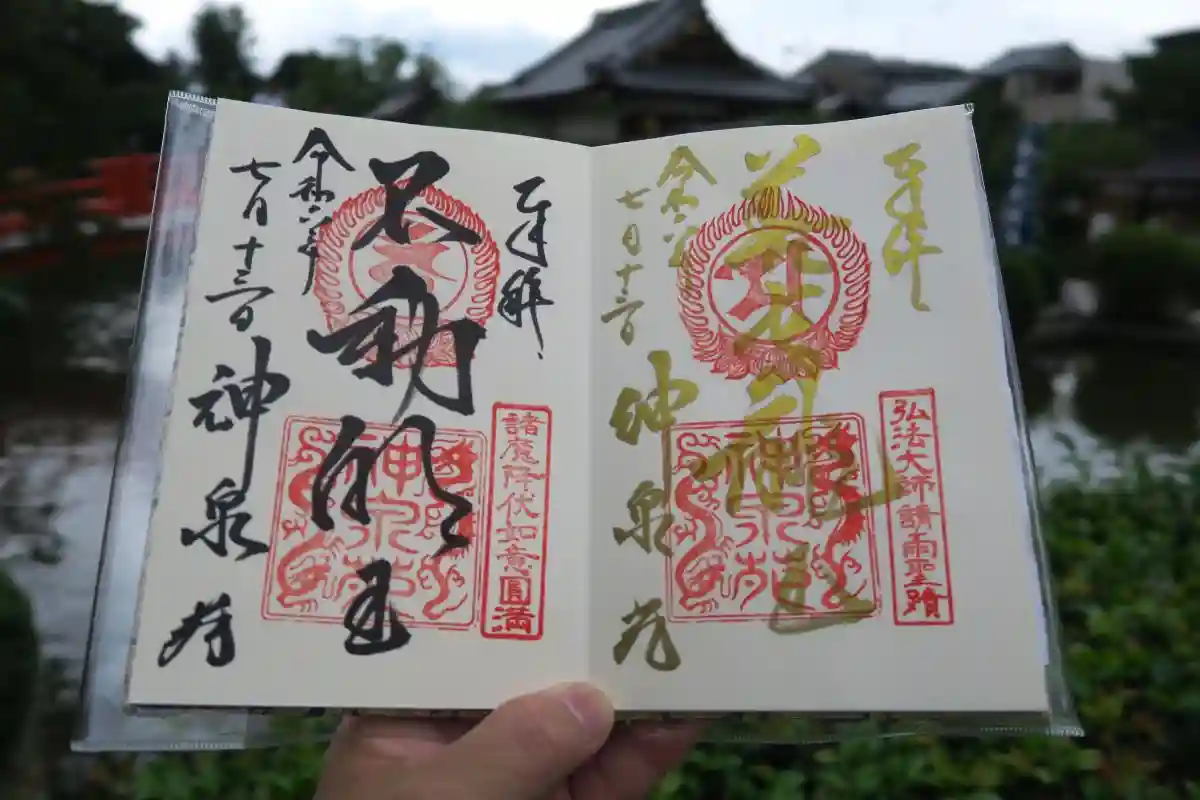 奉拝
弘法大師請雨聖蹟
善女龍王
神泉苑
令和六年
七月十三日
神泉苑
奉拝
諸魔降伏如意圓満
不動明王
神泉苑
令和六年
七月十三日
神泉苑